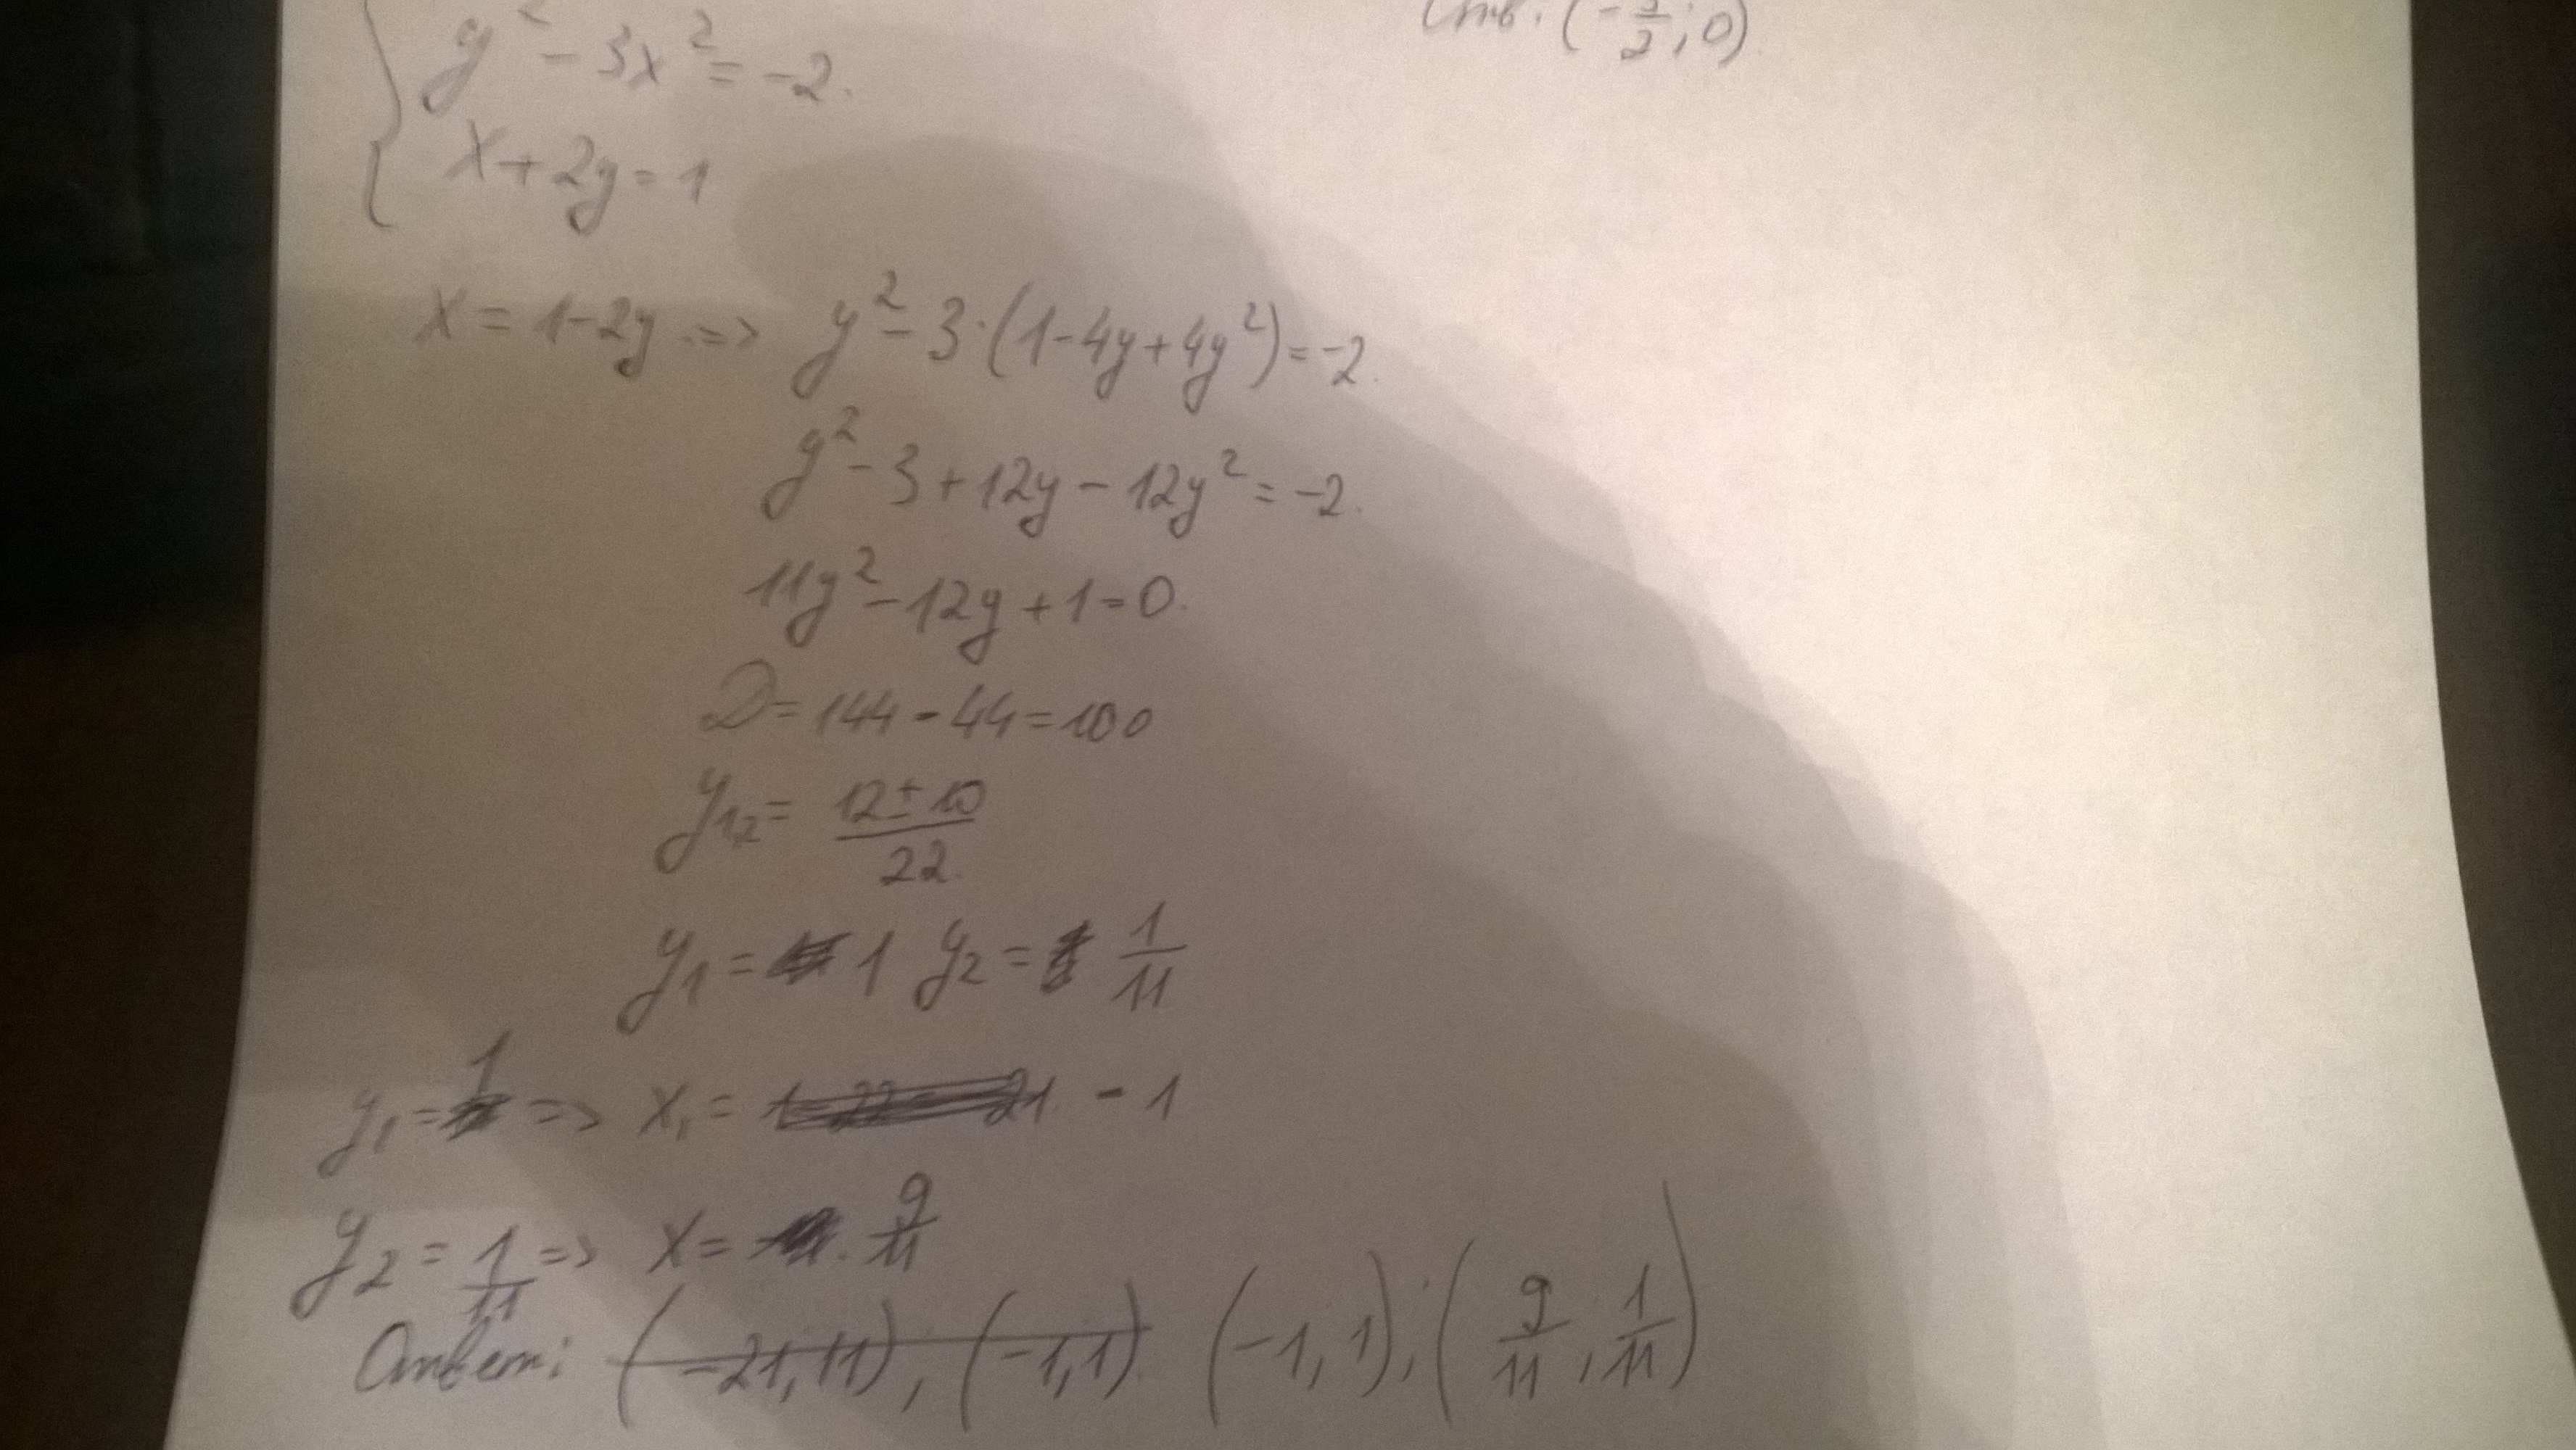 Отв. (-3/2; 0)
y² - 3x² = -2.
x + 2y = 1
x = 1-2y => y² - 3·(1-4y+4y²) = -2.
y² - 3 + 12y - 12y² = -2.
11y² - 12y + 1 = 0.
D = 144 - 44 = 100
y₁,₂ = (12 ± 10)/22.
y₁ = 1 y₂ = 1/11
y₁ = 1 => x₁ = -1
y₂ = 1/11 => x = 9/11
Ответ: (-21, 11), (-1, 1) (-1, 1); (9/11, 1/11)